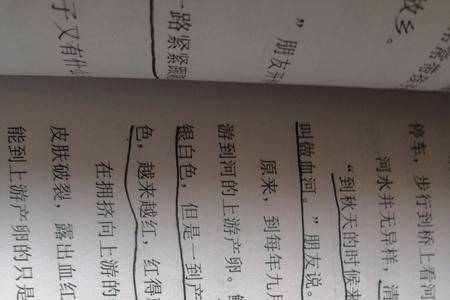 故乡。
”朋友
一路紧紧跟
子又有什
停车，步行到桥上看河
河水并无异样，清
“到秋天的时候来
叫做血河。”朋友说。
原来，到每年九月
游到河的上游产卵。
银白色，但是一到产
色，越来越红，红得
在拥挤向上游的
皮肤破裂，露出血红
能到上游产卵的只是